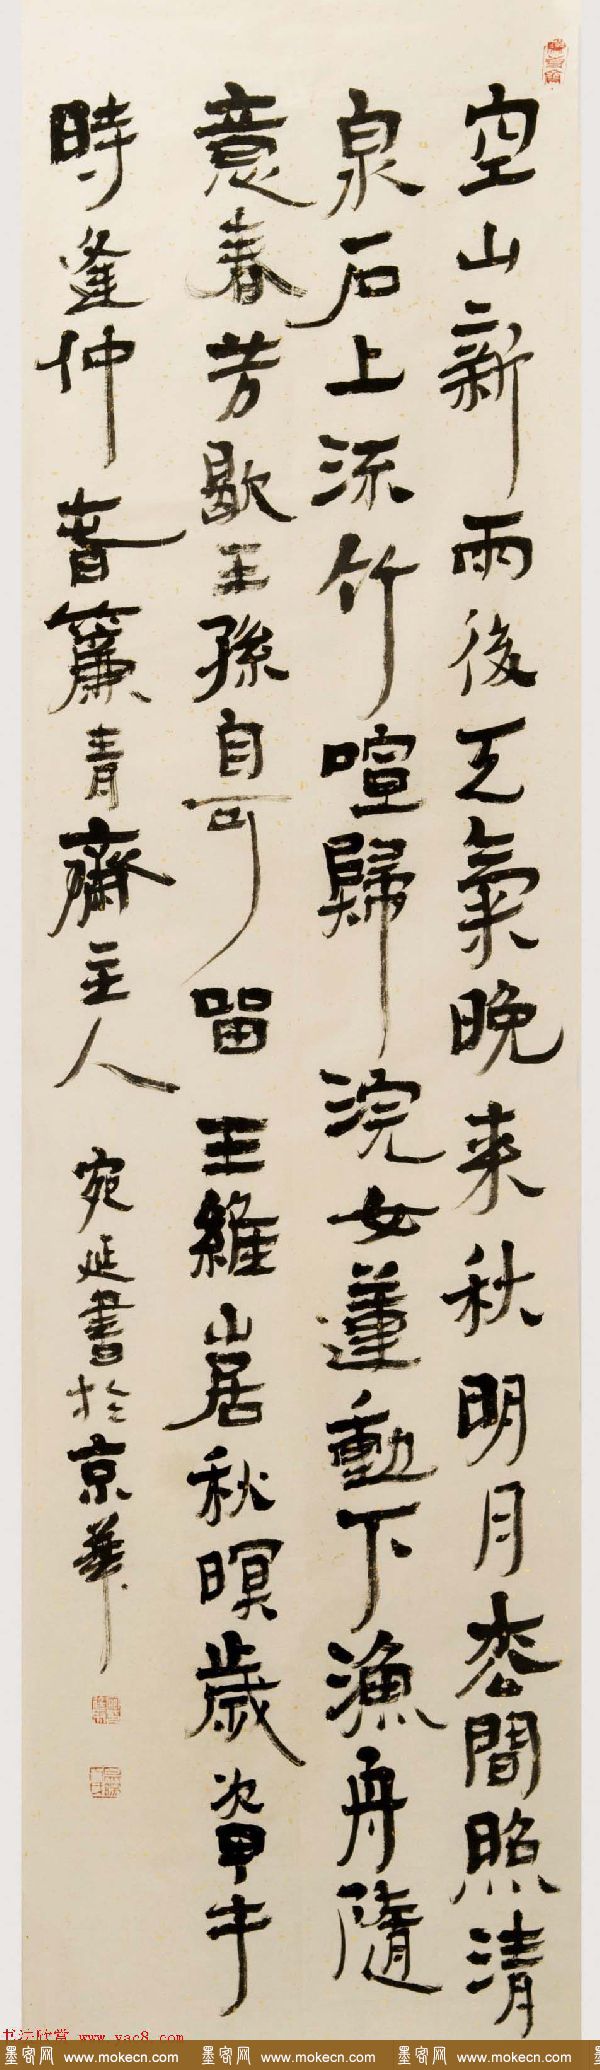 空山新雨後天氣晚来秋明月松間照清
泉石上流竹喧歸浣女蓮動下漁舟隨
意春芳歇王孫自可留 王維山居秋暝歲次甲午
時逢仲春簾青齋主人 宛延書於京華
书法欣赏 www.yac8.com
墨客网 www.mokecn.com 墨客网 www.mokecn.com 墨客网 www.mokecn.com 墨客网 www.mokecn.com